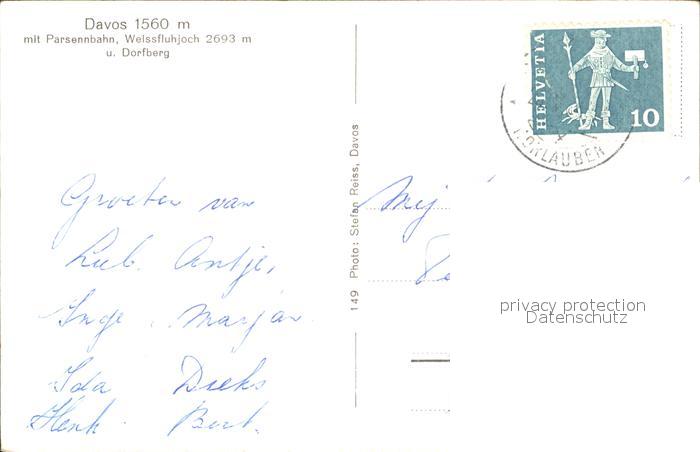 Davos 1560 m
mit Parsennbahn, Weissfluhjoch 2693 m
u. Dorfberg
Groeten van
Lub. Antje,
Inge. Marjan
Ida Dieks
Henk. Bert.
149 Photo: Stefan Reiss, Davos
Mej
HELVETIA
10
privacy protection
Datenschutz